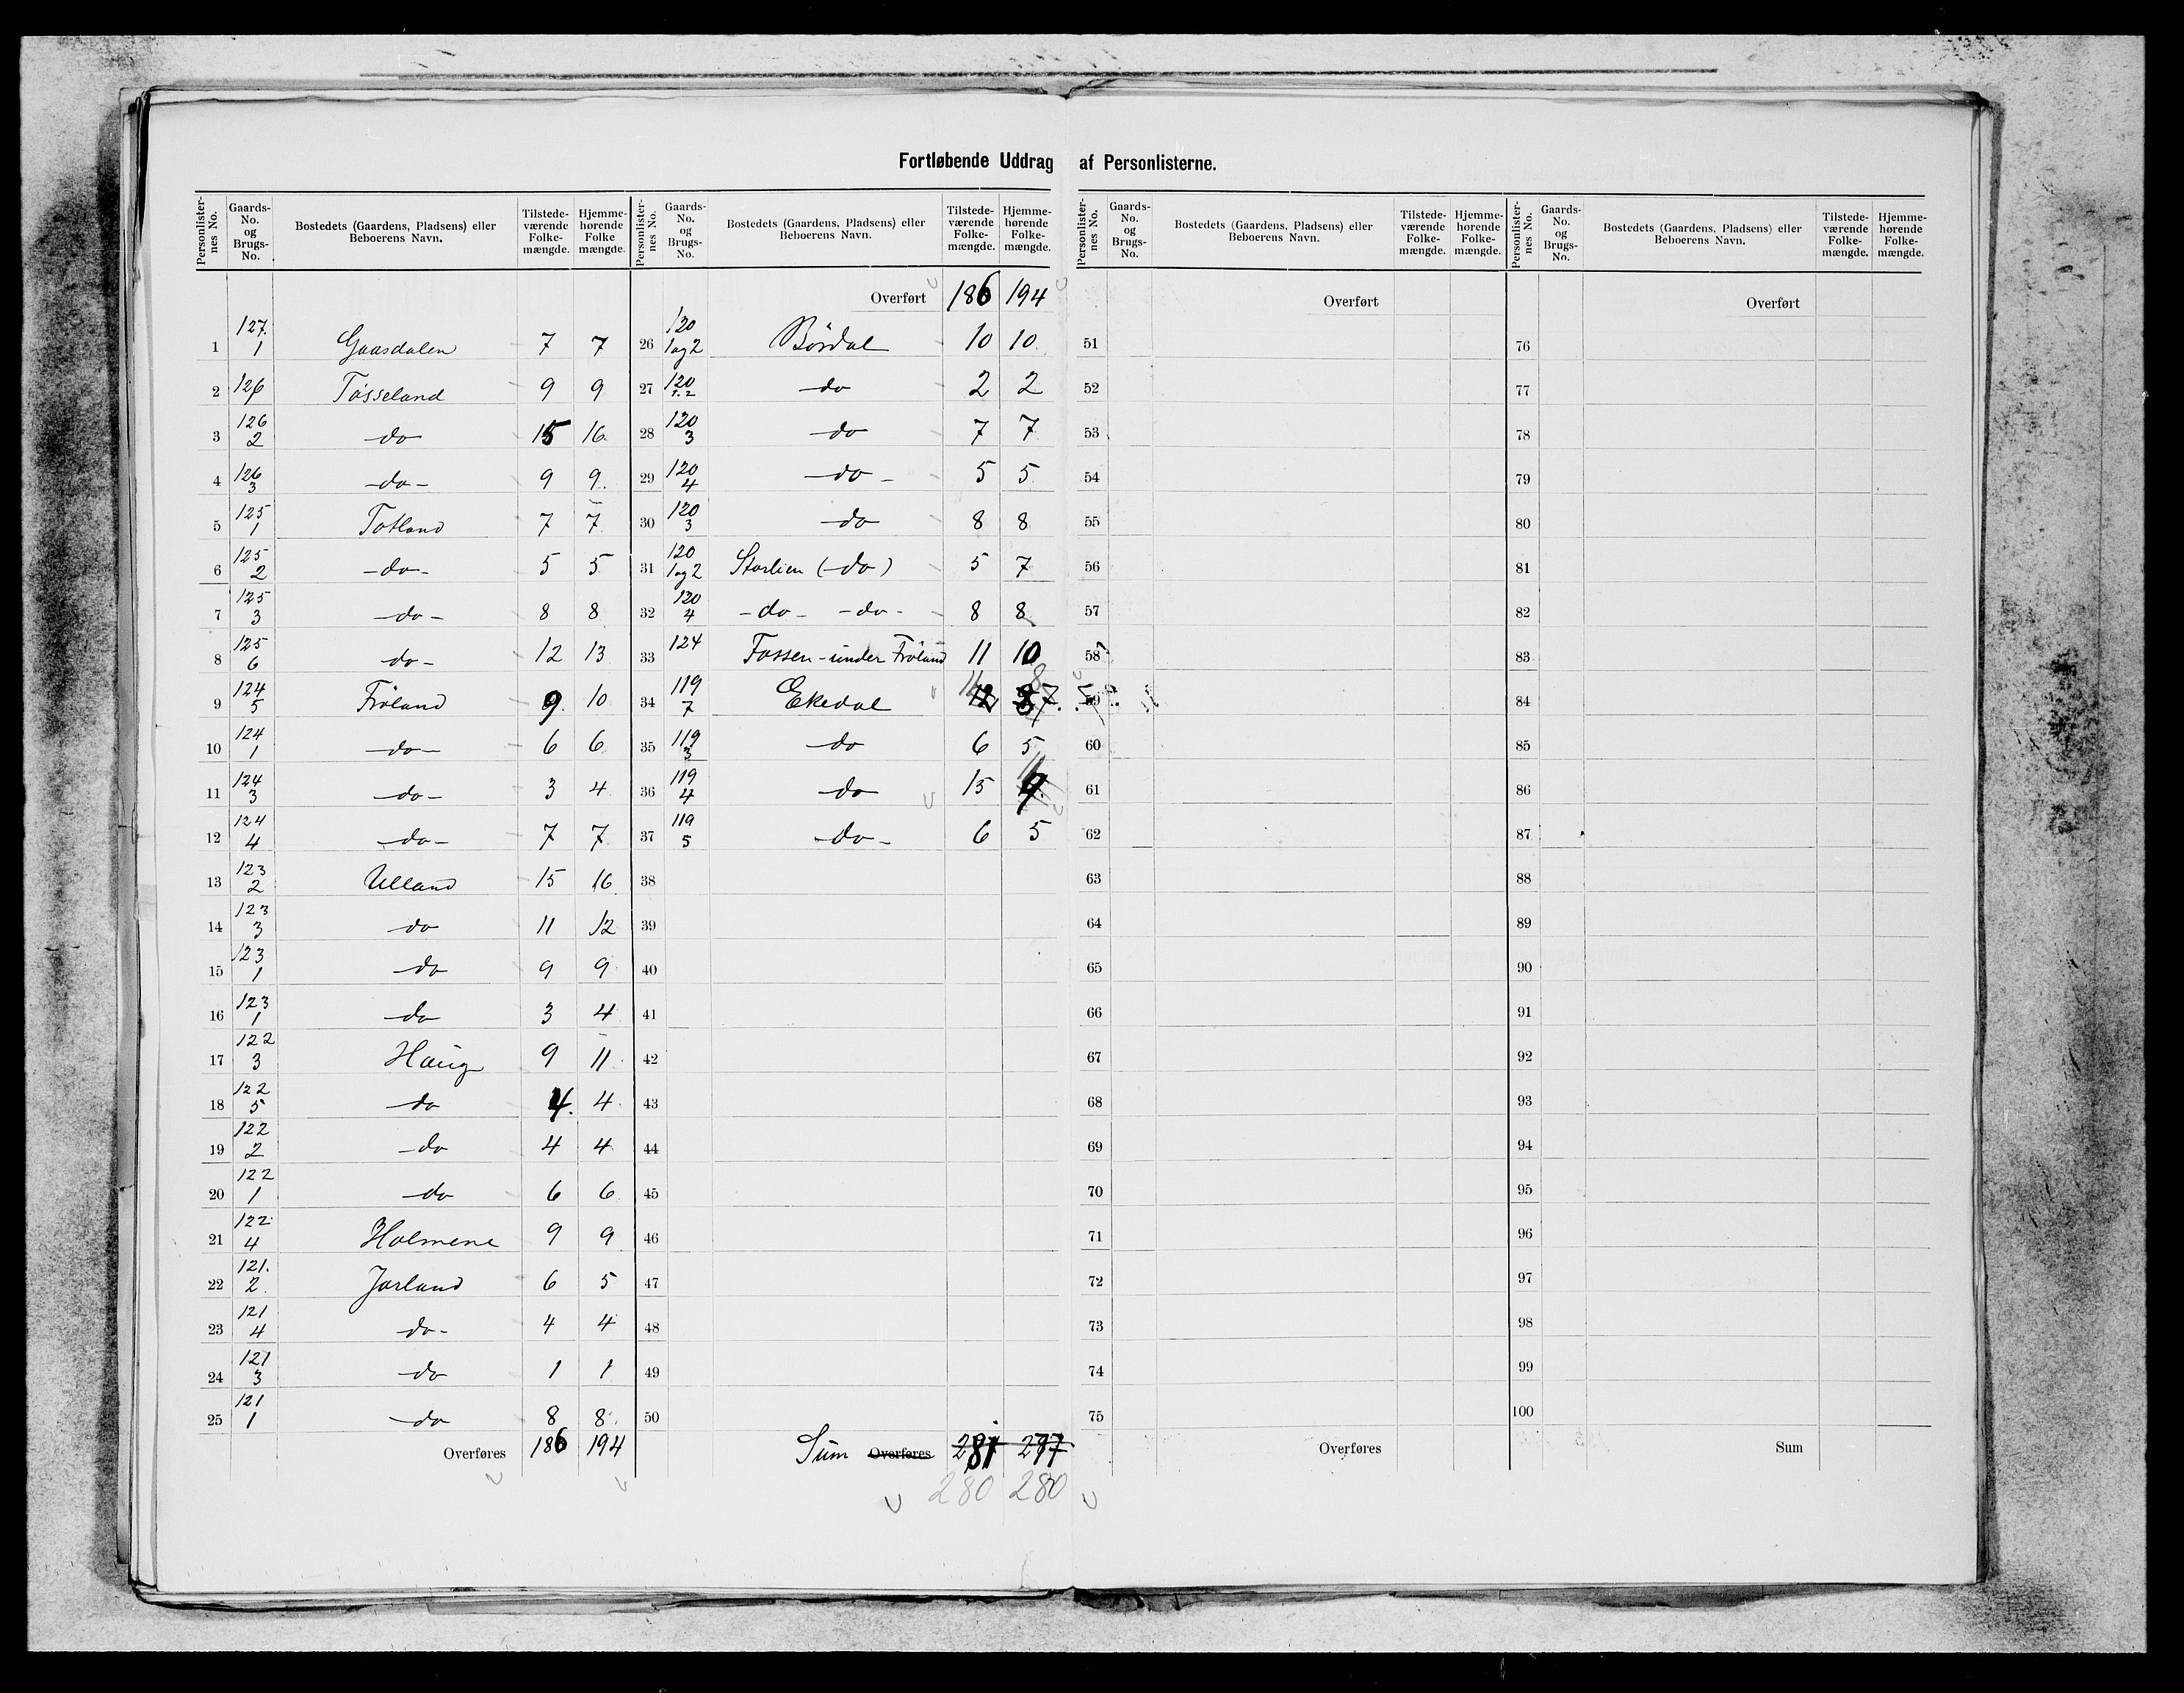 Fortløbende Uddrag af Personlisterne.
Personlisternes No. | Gaards-No. og Brugs-No. | Bostedets (Gaardens, Pladsens) eller Beboerens Navn. | Tilstedeværende Folkemængde. | Hjemmehørende Folke mængde.
1 | 127. 1 | Gaasdalen | 7 | 7
2 | 126 | Tosseland | 9 | 9
3 | 126 2 | do | 15 | 16
4 | 126 3 | do | 9 | 9
5 | 125 1 | Totland | 7 | 7
6 | 125 2 | do | 5 | 5
7 | 125 3 | do | 8 | 8
8 | 125 6 | do | 12 | 13
9 | 124 5 | Fröland | 9 | 10
10 | 124 1 | do | 6 | 6
11 | 124 3 | do | 3 | 4
12 | 124 4 | do | 7 | 7
13 | 123 2 | Ulland | 15 | 16
14 | 123 3 | do | 11 | 12
15 | 123 1 | do | 9 | 9
16 | 123 1 | do | 3 | 4
17 | 122 3 | Haug | 9 | 11
18 | 122 5 | do | 4 | 4
19 | 122 2 | do | 4 | 4
20 | 122 1 | do | 6 | 6
21 | 122 4 | Holmene | 9 | 9
22 | 121. 2 | Jorland | 6 | 5
23 | 121 4 | do | 4 | 4
24 | 121 3 | do | 1 | 1
25 | 121 1 | do | 8 | 8
Overføres | 186 | 194
Personlisternes No. | Gaards-No. og Brugs-No. | Bostedets (Gaardens, Pladsens) eller Beboerens Navn. | Tilstedeværende Folkemængde. | Hjemmehørende Folkemængde.
Overført | 186 | 194
26 | 120 1 og 2 | Börsdal | 10 | 10
27 | 120 | do | 2 | 2
28 | 120 3 | do | 7 | 7
29 | 120 4 | do | 5 | 5
30 | 120 3 | do | 8 | 8
31 | 120 1 og 2 | Storlien (do) | 5 | 7
32 | 120 4 | do do | 8 | 8
33 | 124 | Fossen under Fröland | 11 | 10
34 | 119 7 | Ekedal
35 | 119 3 | do | 6 | 5
36 | 119 4 | do | 15
37 | 119 5 | do | 6 | 5
38
39
40
41
42
43
44
45
46
47
48
49
50
Sum Overføres | 281 | 277
280 | 280
Personlisternes No. | Gaards-No. og Brugs-No. | Bostedets (Gaardens, Pladsens) eller Beboerens Navn. | Tilstedeværende Folkemængde. | Hjemmehørende Folkemængde.
Overført
51
52
53
54
55
56
57
58
59
60
61
62
63
64
65
66
67
68
69
70
71
72
73
74
75
Overføres
Personlisternes No. | Gaards-No. og Brugs-No. | Bostedets (Gaardens, Pladsens) eller Beboerens Navn. | Tilstedeværende Folkemængde. | Hjemmehørende Folkemængde.
Overført
76
77
78
79
80
81
82
83
84
85
86
87
88
89
90
91
92
93
94
95
96
97
98
99
100
Sum